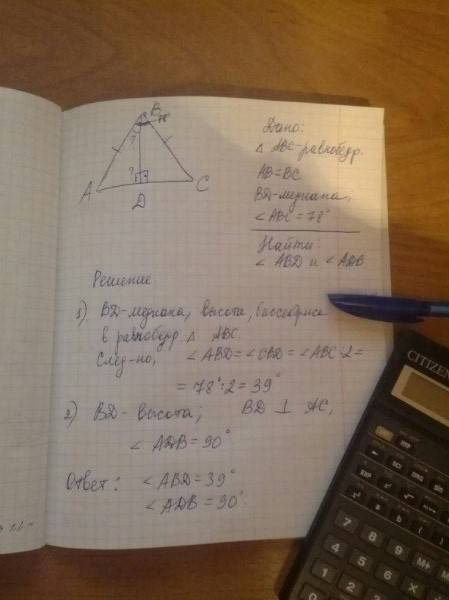 B
78°
?
?
A
C
D
Дано:
△ ABC-равнобедр.
AB=BC
BD-медиана,
∠ABC=78°
Найти:
∠ ABD и ∠ADB
Решение
1) BD-медиана, высота, биссектриса
в равнобедр △ ABC
след-но, ∠ABD=∠CBD=∠ABC:2=
=78°:2=39°
2) BD-высота; BD ⊥ AC,
∠ADB=90°
Ответ: ∠ABD=39°
∠ADB=90°.
CITIZEN
7
8
9
M+
4
5
6
1
2
3
0